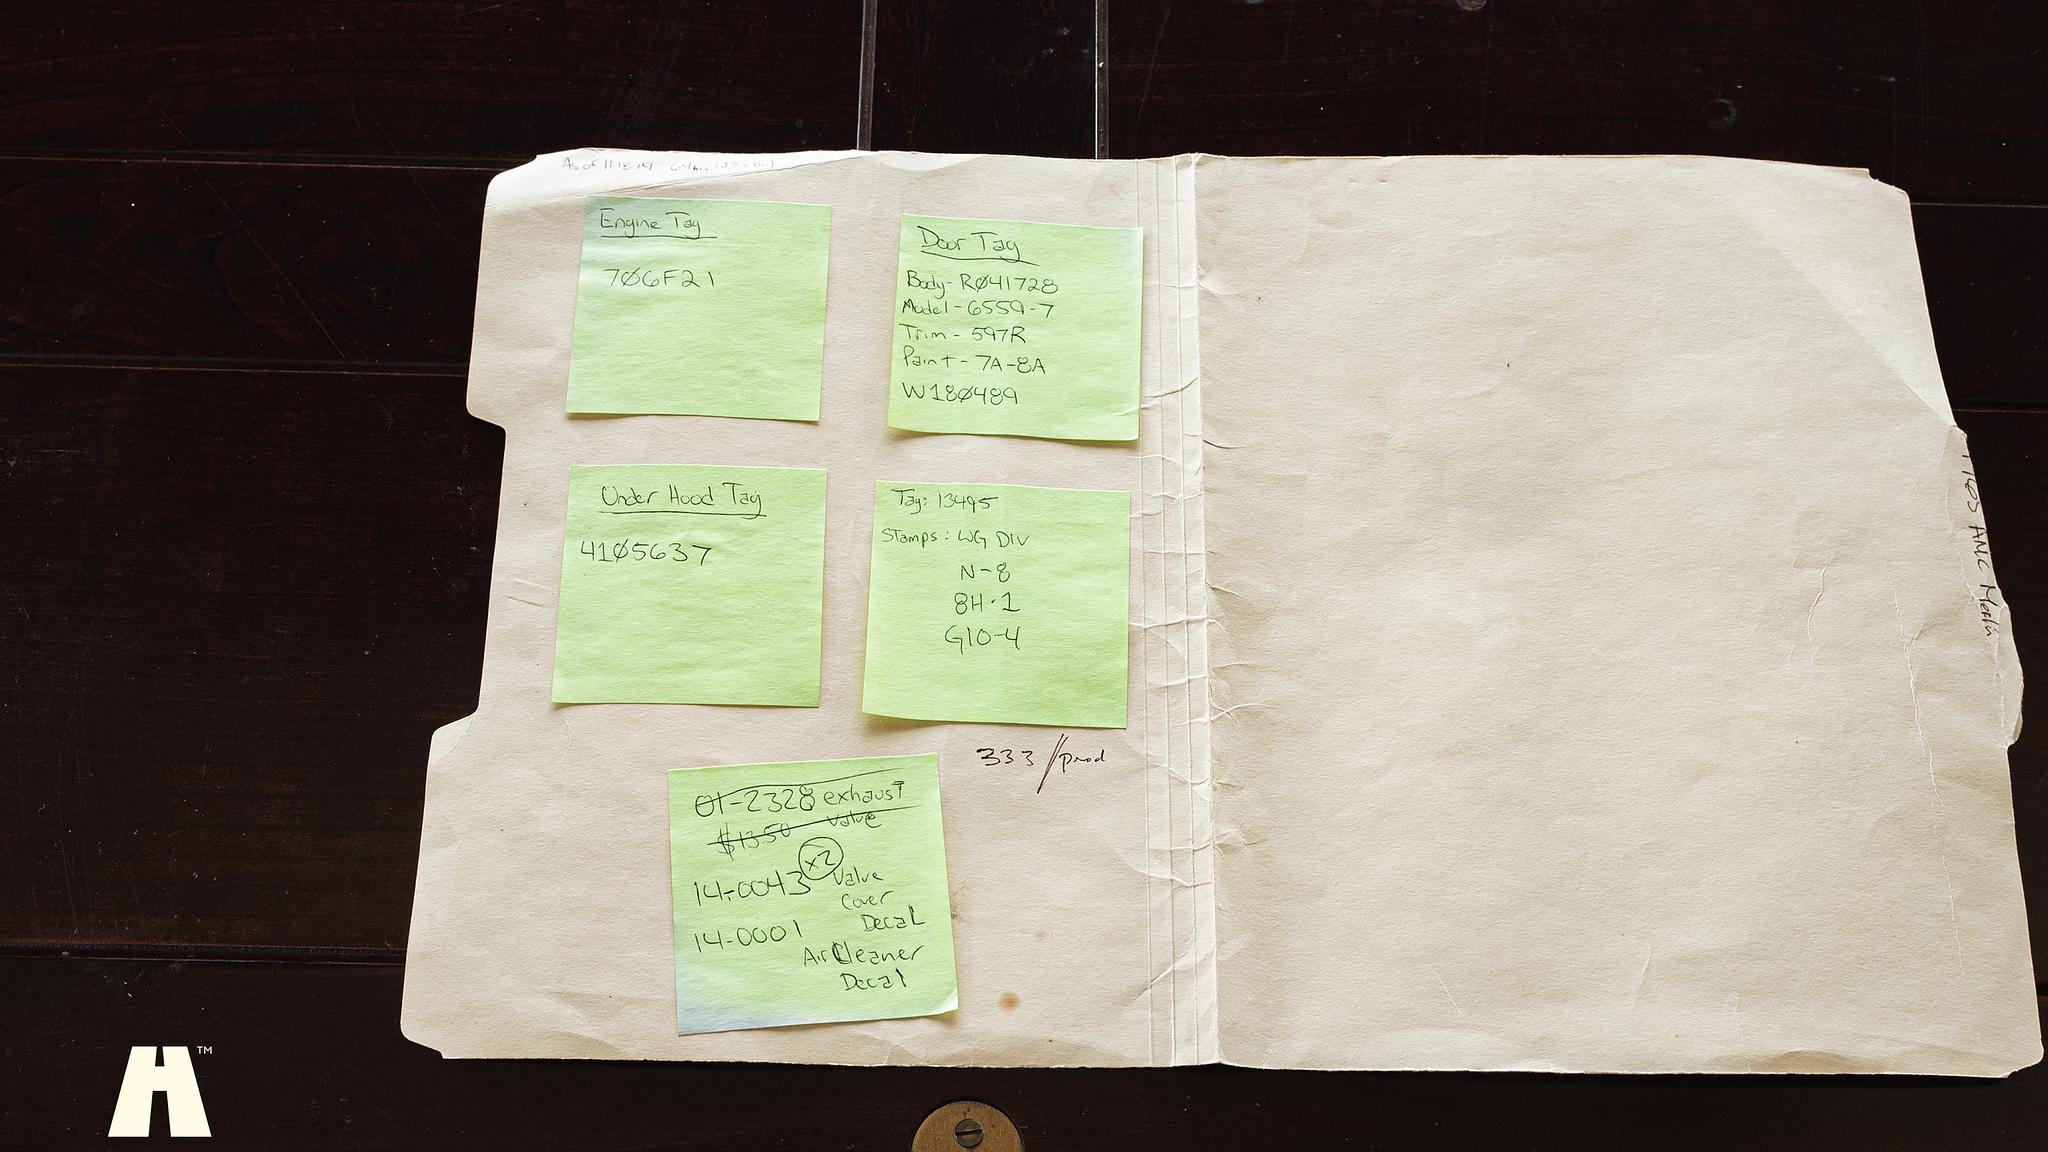 As of 11-18-14
Engine Tag
7Ø6F21
Door Tag
Body- RØ41728
Model - 6559-7
Trim - 597R
Paint - 7A-8A
W18Ø489
Under Hood Tag
41Ø5637
Tag: 13495
Stamps: WG DIV
N-8
8H-1
G10-4
333 // prod
01-2328 exhaust
$13.50 valve
14-0043 x2 Valve
Cover
Decal
14-0001
Air Cleaner
Decal
AMC Marlin
H™